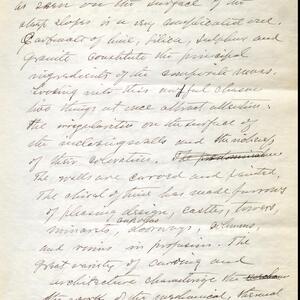 as seen on the surface of the
steep slopes is a very complicated one.
Carbonate of lime, silica, sulphur and
granite constitute the principal
ingredients of the composite mass.
Looking into this awful chasm
two things at once attract attention:
the irregularities on the surface of
the enclosing walls and the richness
of their coloration. The predominating
The walls are carved and painted,
The chisel of time has made furrows
of pleasing design, castles, towers,
minarets, doorways, columns,
and ruins in profusion. The
great variety of carving and
architecture characterize the
the work of the mechanical